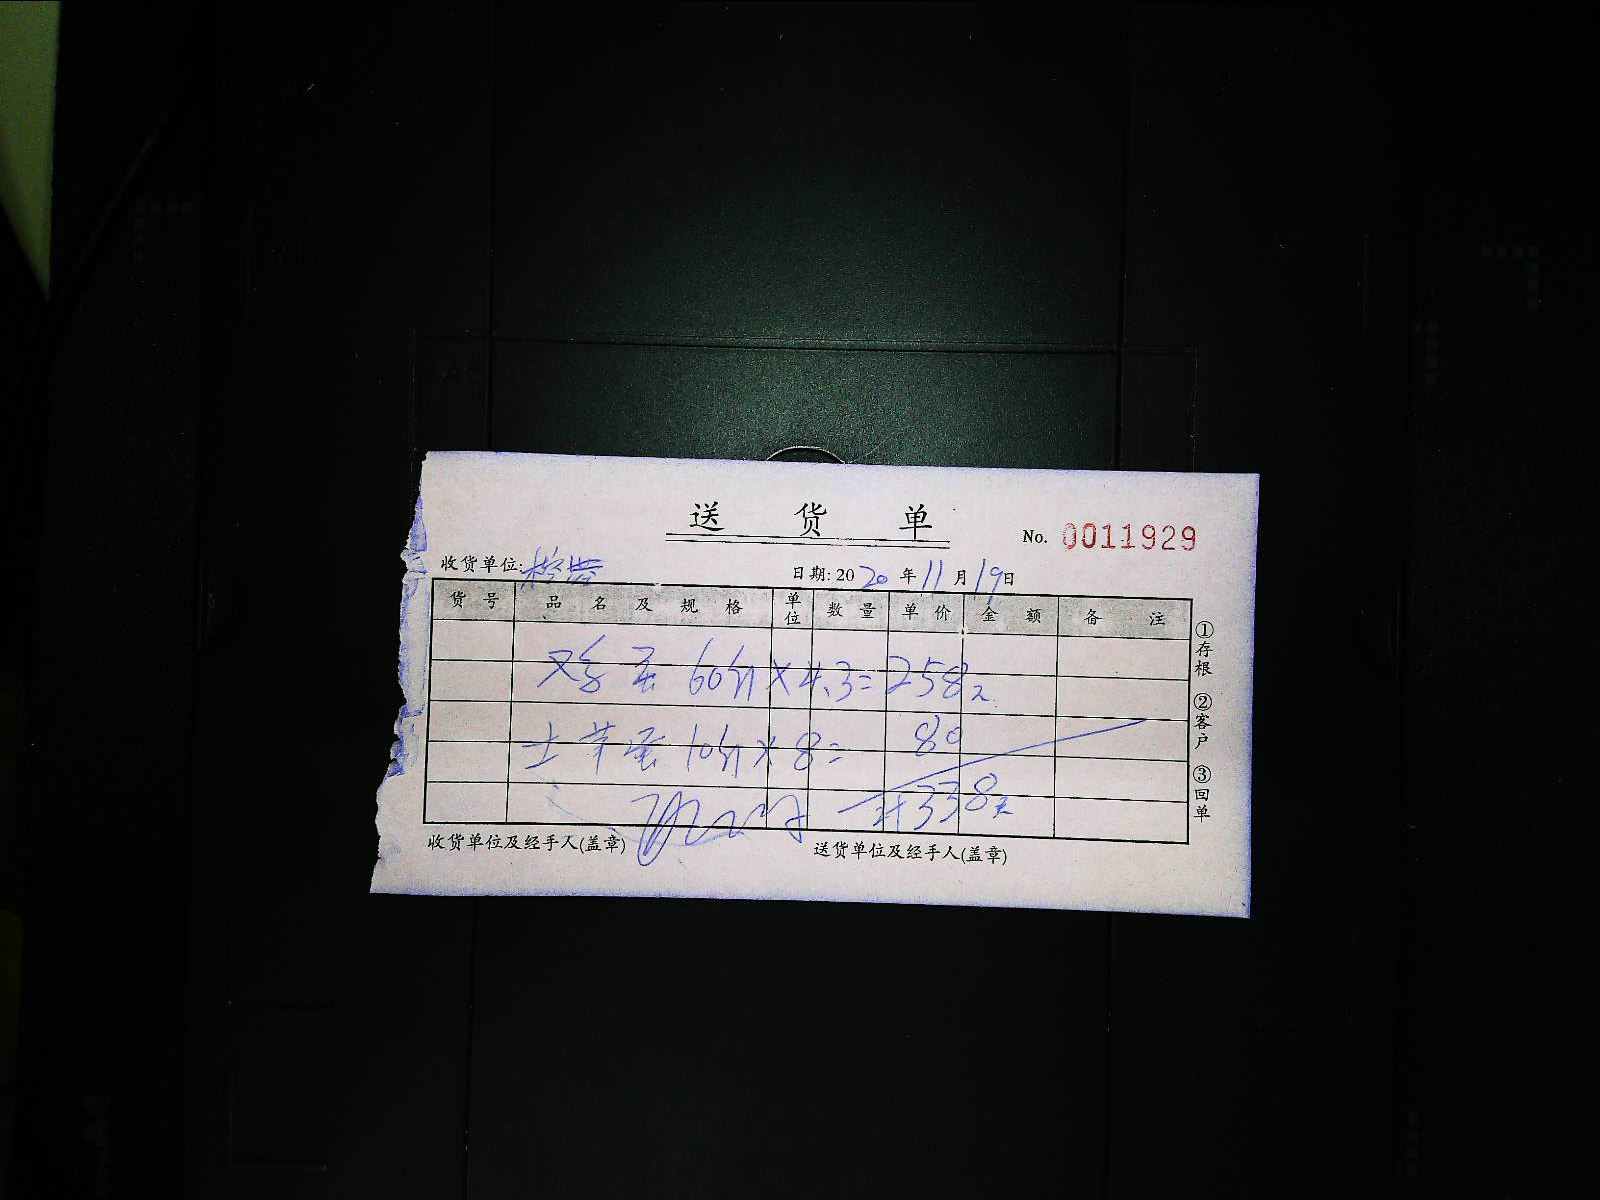 送 货 单
No. 0011929
收货单位:
日期: 2020 年 11 月 19 日
货 号 品 名 及 规 格 单位 数 量 单 价 金 额 备 注
鸡蛋 60斤×4.3=258元
土 蛋 10斤×8= 80
计338元
收货单位及经手人(盖章)
送货单位及经手人(盖章)
①存根 ②客户 ③回单